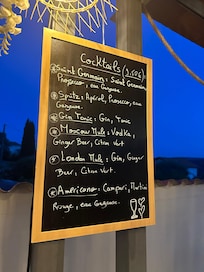 Cocktails (9,50€)
Saint Germain : Saint Germain,
Prosecco, eau Gazeuse.
Spritz : Apérol, Prosecco, eau
Gazeuse.
Gin Tonic : Gin, Tonic
Moscow Mule : Vodka,
Ginger Beer, Citron Vert.
London Mule : Gin, Ginger
Beer, Citron Vert.
Americano : Campari, Martini
Rouge, eau Gazeuse.